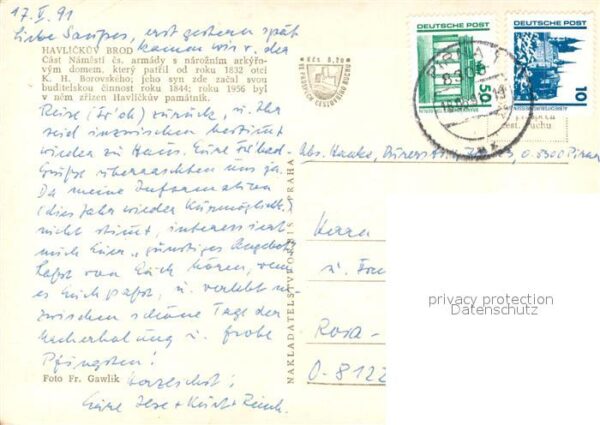 17. V. 91
Liebe Sanpes, erst gestern spät
HAVLÍČKŮV BROD
kamen wir v. der
Část Náměstí čs. armády s nárožním arkýřo-
vým domem, který patřil od roku 1832 otci
K. H. Borovského; jeho syn zde začal svou
buditelskou činnost roku 1844; roku 1956 byl
v něm zřízen Havlíčkův památník.
Kčs 0,20
VE PROSPĚCH ČESTNÉHO RUCHU
DEUTSCHE POST
50
DEUTSCHE POST
10
PIRNA 1
8300
Reise zurück, u. Ihr
seid inzwischen bestimmt
wieder zu Haus. Eure
Grüße überraschten uns ja.
Da meine Information
(dies Jahr wieder Kurmöglichk.)
nicht stimmt, interessiert
mich Euer "günstiges Angebot"
Laßt von Euch hören, wenn
es Euch paßt, u. verlebt in-
zwischen schöne Tage der
Nacherholung u. frohe
Pfingsten!
Herzlichst!
Eure Ilse + Kurt +
Abs. Hanke, O-8300 Pirna
Herrn
u. Frau
Rosa-
O-8122
privacy protection
Datenschutz
Foto Fr. Gawlik
NAKLADATELSTVÍ ORBIS - PRAHA